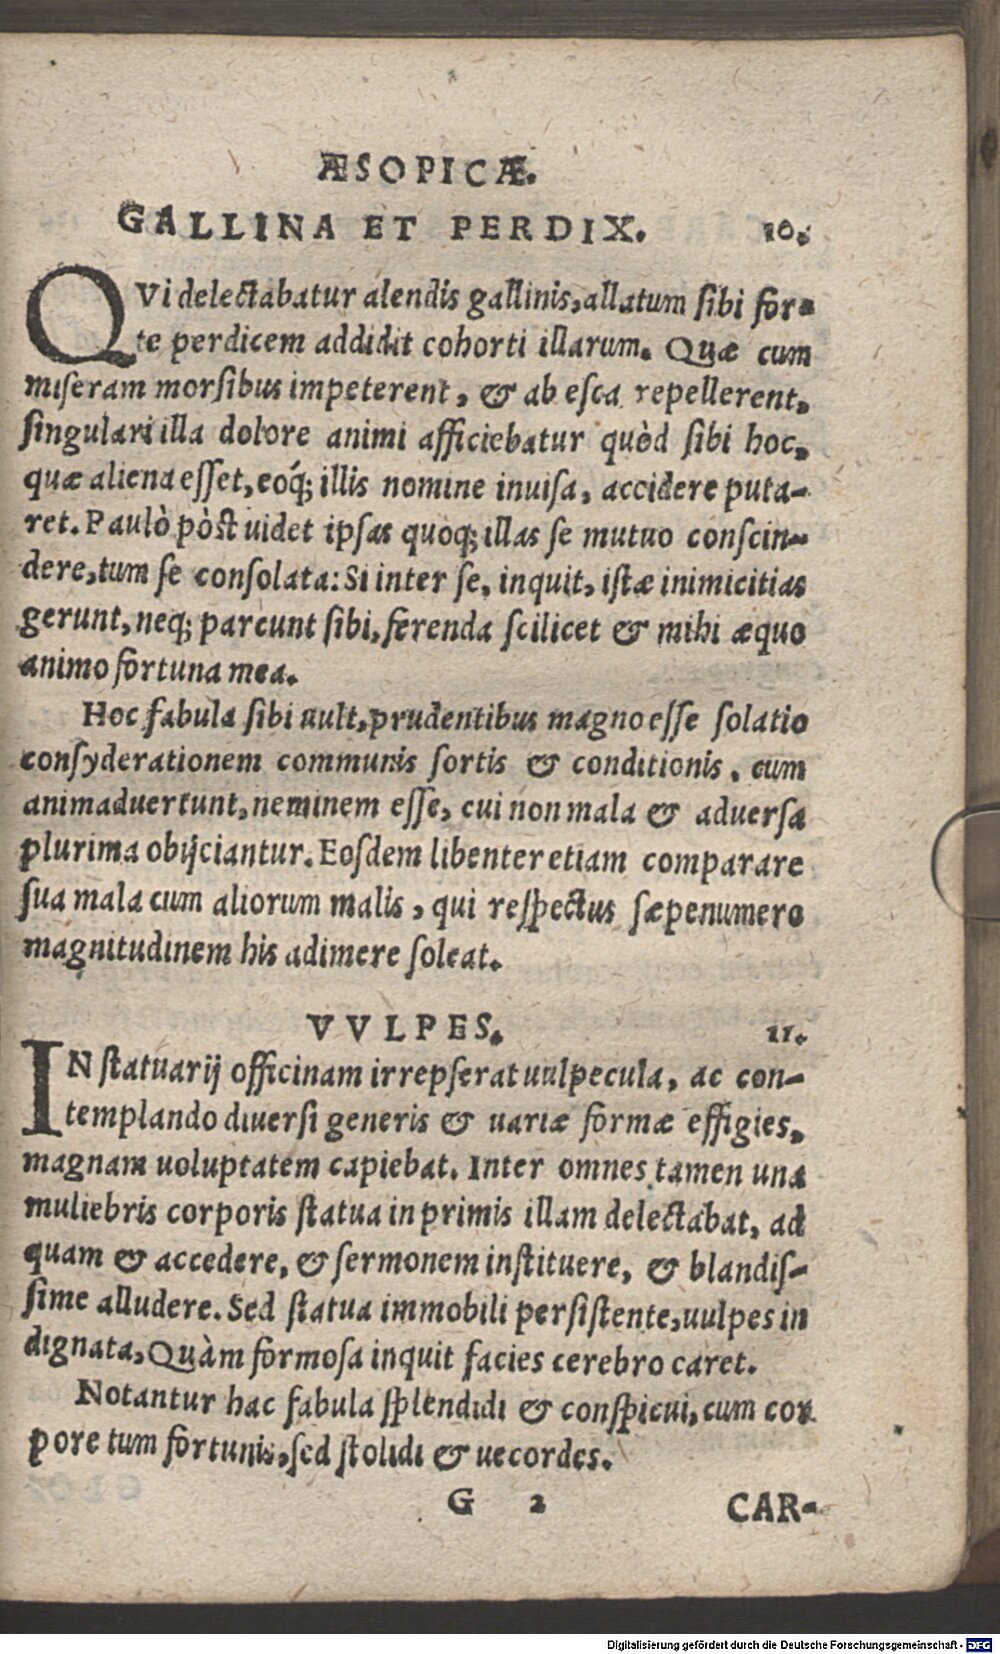 ÆSOPICÆ.
GALLINA ET PERDIX. 10.
QVi delectabatur alendis gallinis, allatum sibi for-
te perdicem addidit cohorti illarum. Quæ cum
miseram morsibus impeterent, & ab esca repellerent,
singulari illa dolore animi afficiebatur quòd sibi hoc,
quæ aliena esset, eóq; illis nomine inuisa, accidere puta-
ret. Paulò pòst uidet ipsas quoq; illas se mutuo conscin-
dere, tum se consolata: Si inter se, inquit, istæ inimicitias
gerunt, neq; parcunt sibi, ferenda scilicet & mihi æquo
animo fortuna mea.
Hoc fabula sibi uult, prudentibus magno esse solatio
consyderationem communis sortis & conditionis, cum
animaduertunt, neminem esse, cui non mala & aduersa
plurima obijciantur. Eosdem libenter etiam comparare
sua mala cum aliorum malis, qui respectus sæpenumero
magnitudinem his adimere soleat.
VVLPES. 11.
IN statuarij officinam irrepserat uulpecula, ac con-
templando diuersi generis & uariæ formæ effigies,
magnam uoluptatem capiebat. Inter omnes tamen una
muliebris corporis statua in primis illam delectabat, ad
quam & accedere, & sermonem instituere, & blandis-
sime alludere. Sed statua immobili persistente, uulpes in
dignata, Quàm formosa inquit facies cerebro caret.
Notantur hac fabula splendidi & conspicui, cum cor
pore tum fortunis, sed stolidi & uecordes.
G 2 CAR-
Digitalisierung gefördert durch die Deutsche Forschungsgemeinschaft - DFG